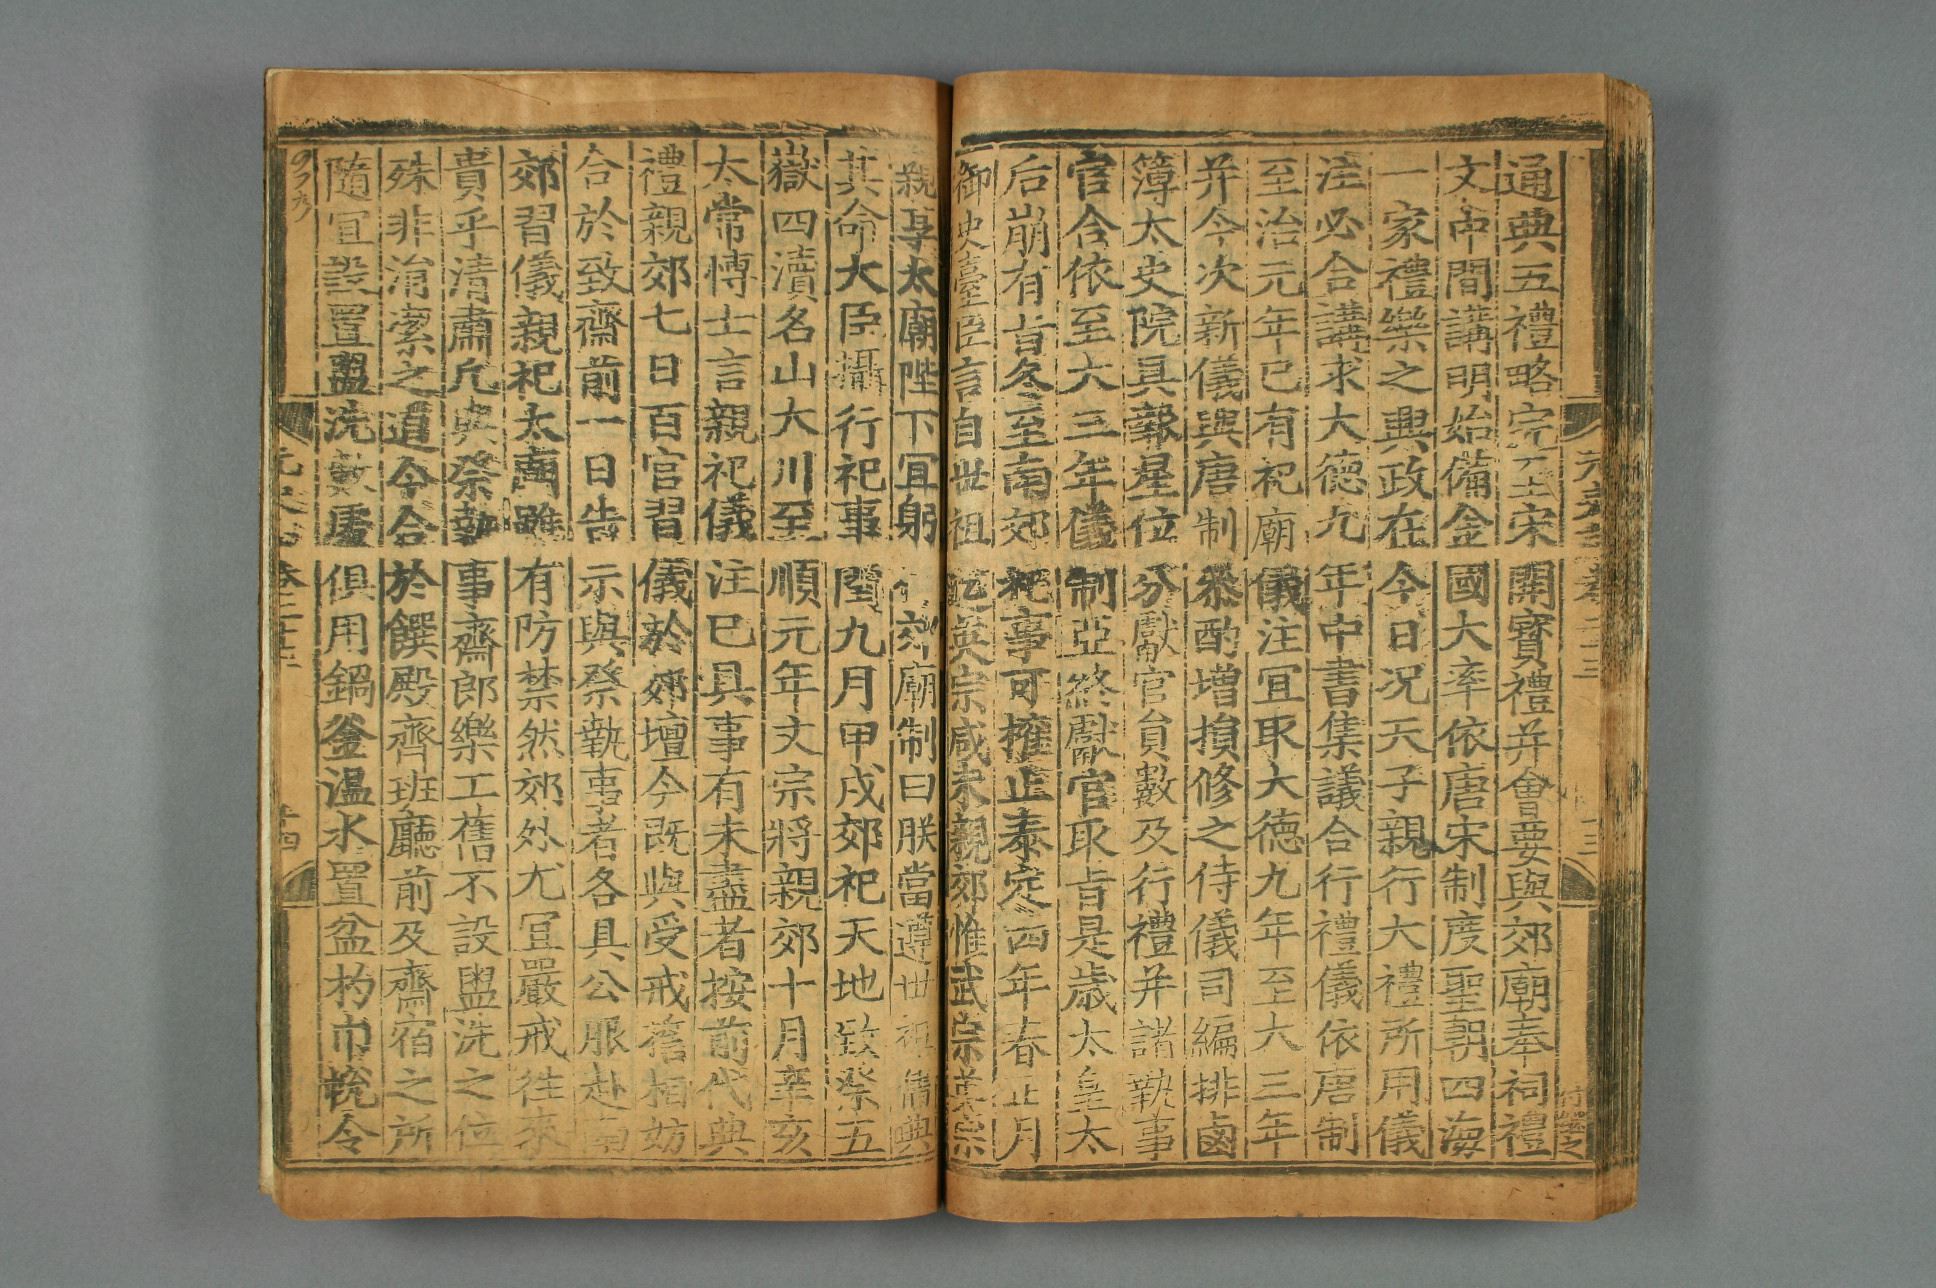 通典五禮略完至宋開寳禮并會要與郊廟奉祠禮
文中間講明始備金國大率依唐宋制度聖朝四海
一家禮樂之興政在今日况天子親行大禮所用儀
注必合講求大德九年中書集議合行禮儀依唐制
至治元年已有祀廟儀注宜取大德九年至大三年
并今次新儀與唐制叅酌增損修之侍儀司編排鹵
簿太史院具報星位分獻官員數及行禮并諸執事
官合依至大三年儀制亞終獻官取旨是歲太皇太
后崩有旨冬至南郊祀事可權止泰定四年春正月
御史臺臣言自世祖迄英宗咸未親郊惟武宗英宗
親享太廟陛下宜躬祀郊廟制曰朕當遵世祖舊典
其命大臣攝行祀事閏九月甲戌郊祀天地致祭五
嶽四瀆名山大川至順元年文宗將親郊十月辛亥
太常博士言親祀儀注已具事有未盡者按前代典
禮親郊七日百官習儀於郊壇今既與受戒誓相妨
合於致齋前一日告示與祭執事者各具公服赴南
郊習儀親祀太廟雖有防禁然郊外尤宜嚴戒徃來
貴乎清肅凡與祭執事齋郎樂工舊不設盥洗之位
殊非涓潔之道今合於饌殿齊班廳前及齋宿之所
隨宜設置盥洗數處俱用鍋釜温水置盆杓巾帨令
元史志 卷二十三
十四